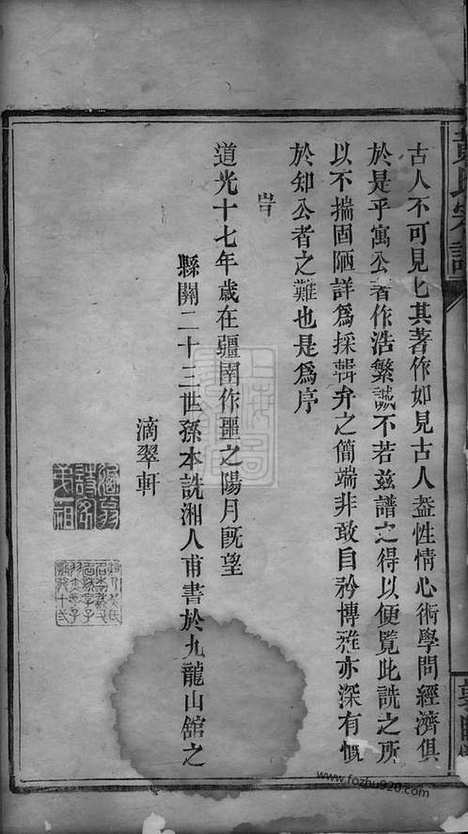 古人不可見匕其著作如見古人葢性情心術學問經濟俱
於是乎寓公著作浩繁誠不若兹譜之得以便覧此詵之所
以不揣固陋詳爲採輯弁之簡端非敢自矜博雅亦深有慨
於知公者之難也是爲序
旹
道光十七年歲在疆圉作噩之陽月旣望
縣關二十三世孫本詵湘人甫書於九龍山舘之
滴翠軒
www.fozhu920.com